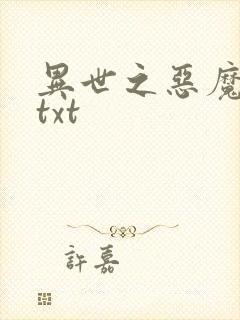 異世之惡魔
txt
許嘉